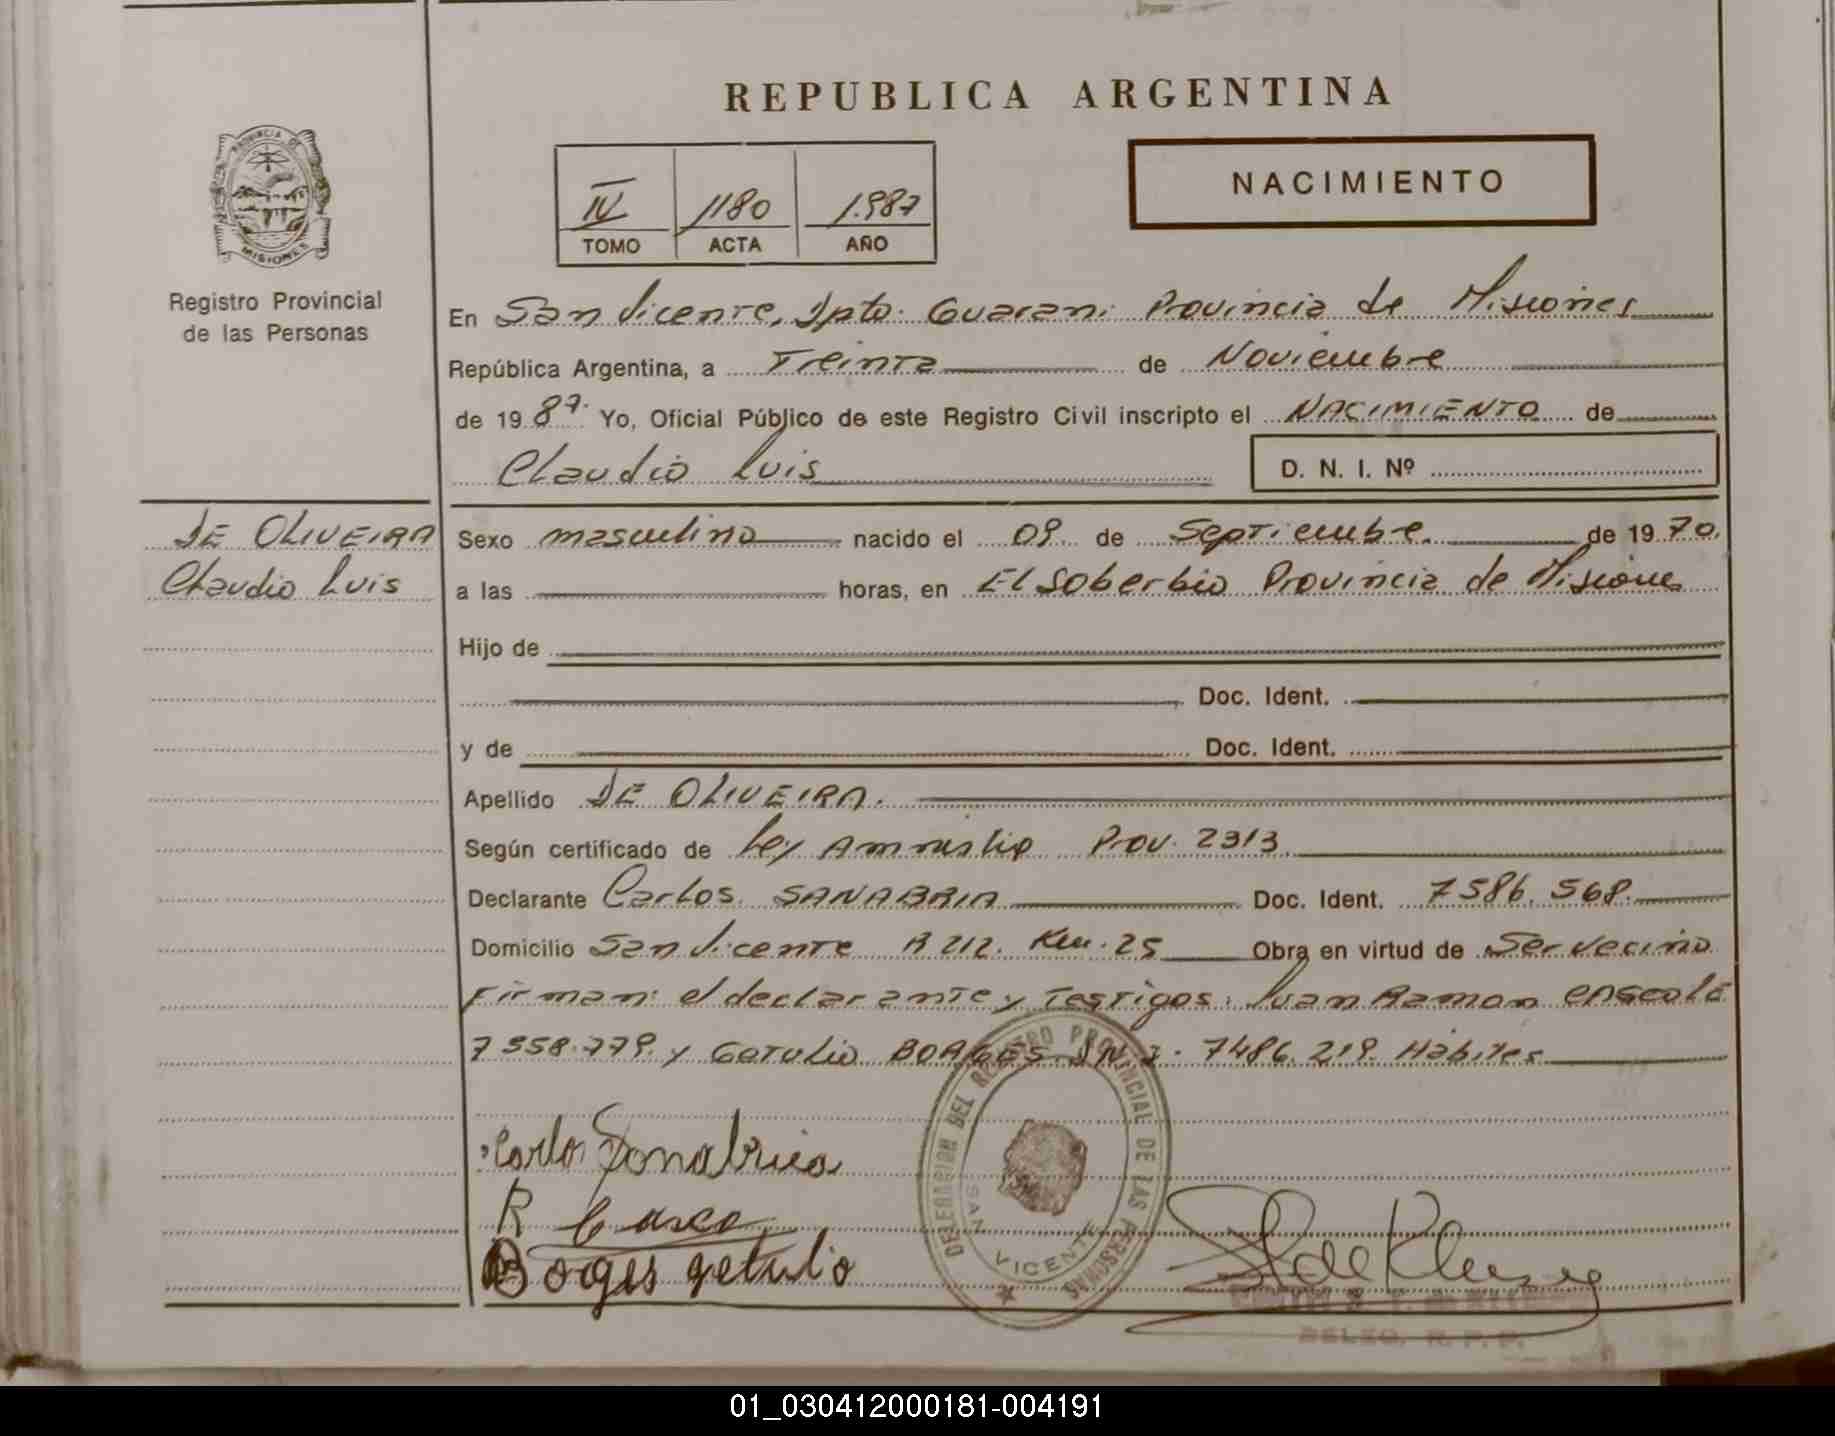 REPUBLICA ARGENTINA
PROVINCIA DE
MISIONES
Registro Provincial
de las Personas
IV 1180 1.987
TOMO ACTA AÑO
NACIMIENTO
En San Vicente, Dpto. Guarani Provincia de Misiones
República Argentina, a Treinta de Noviembre
de 1987. Yo, Oficial Público de este Registro Civil inscripto el NACIMIENTO de
Claudio Luis D. N. I. Nº
DE OLIVEIRA
Claudio Luis
Sexo masculino nacido el 09 de Septiembre. de 1970.
a las horas, en El Soberbio Provincia de Misiones
Hijo de
Doc. Ident.
y de Doc. Ident.
Apellido DE OLIVEIRA.
Según certificado de Ley Amnistia Prov. 2313.
Declarante Carlos SANABRIA Doc. Ident. 7586.568.
Domicilio San Vicente R 212. Km. 25 Obra en virtud de Ser vecino
Firman: el declarante y Testigos: Juan Ramon
7558.779. y Getulio BORGES D.N.I. 7486.219. Hábiles
Carlos Sanabria
R
Borges getulio
DELEGACION DEL REGISTRO PROVINCIAL DE LAS PERSONAS
SAN VICENTE
R. P. P.
01_030412000181-004191